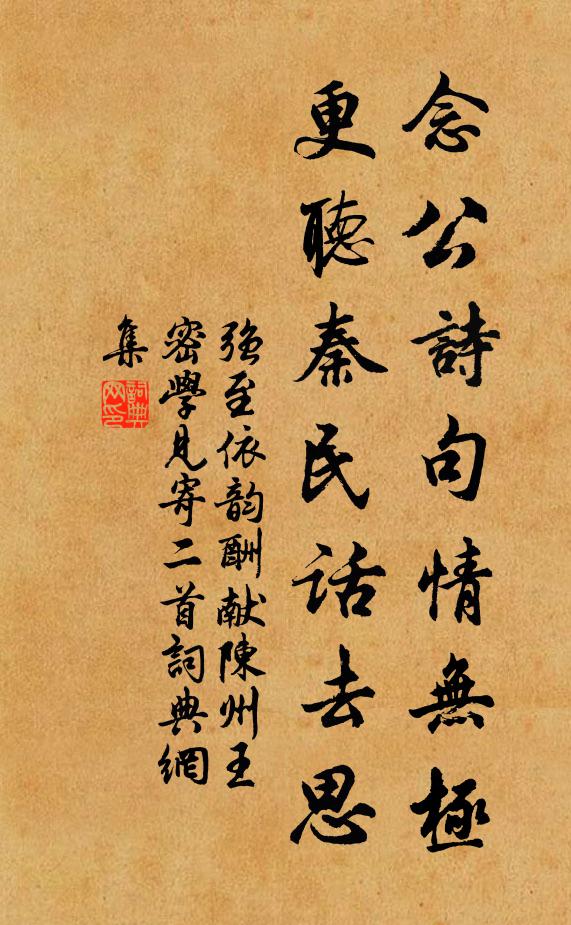 念公詩句情無極
更聽秦民話去思
強至依韵酬献陳州王
密學見寄二首詞典網
集
詞典
网印